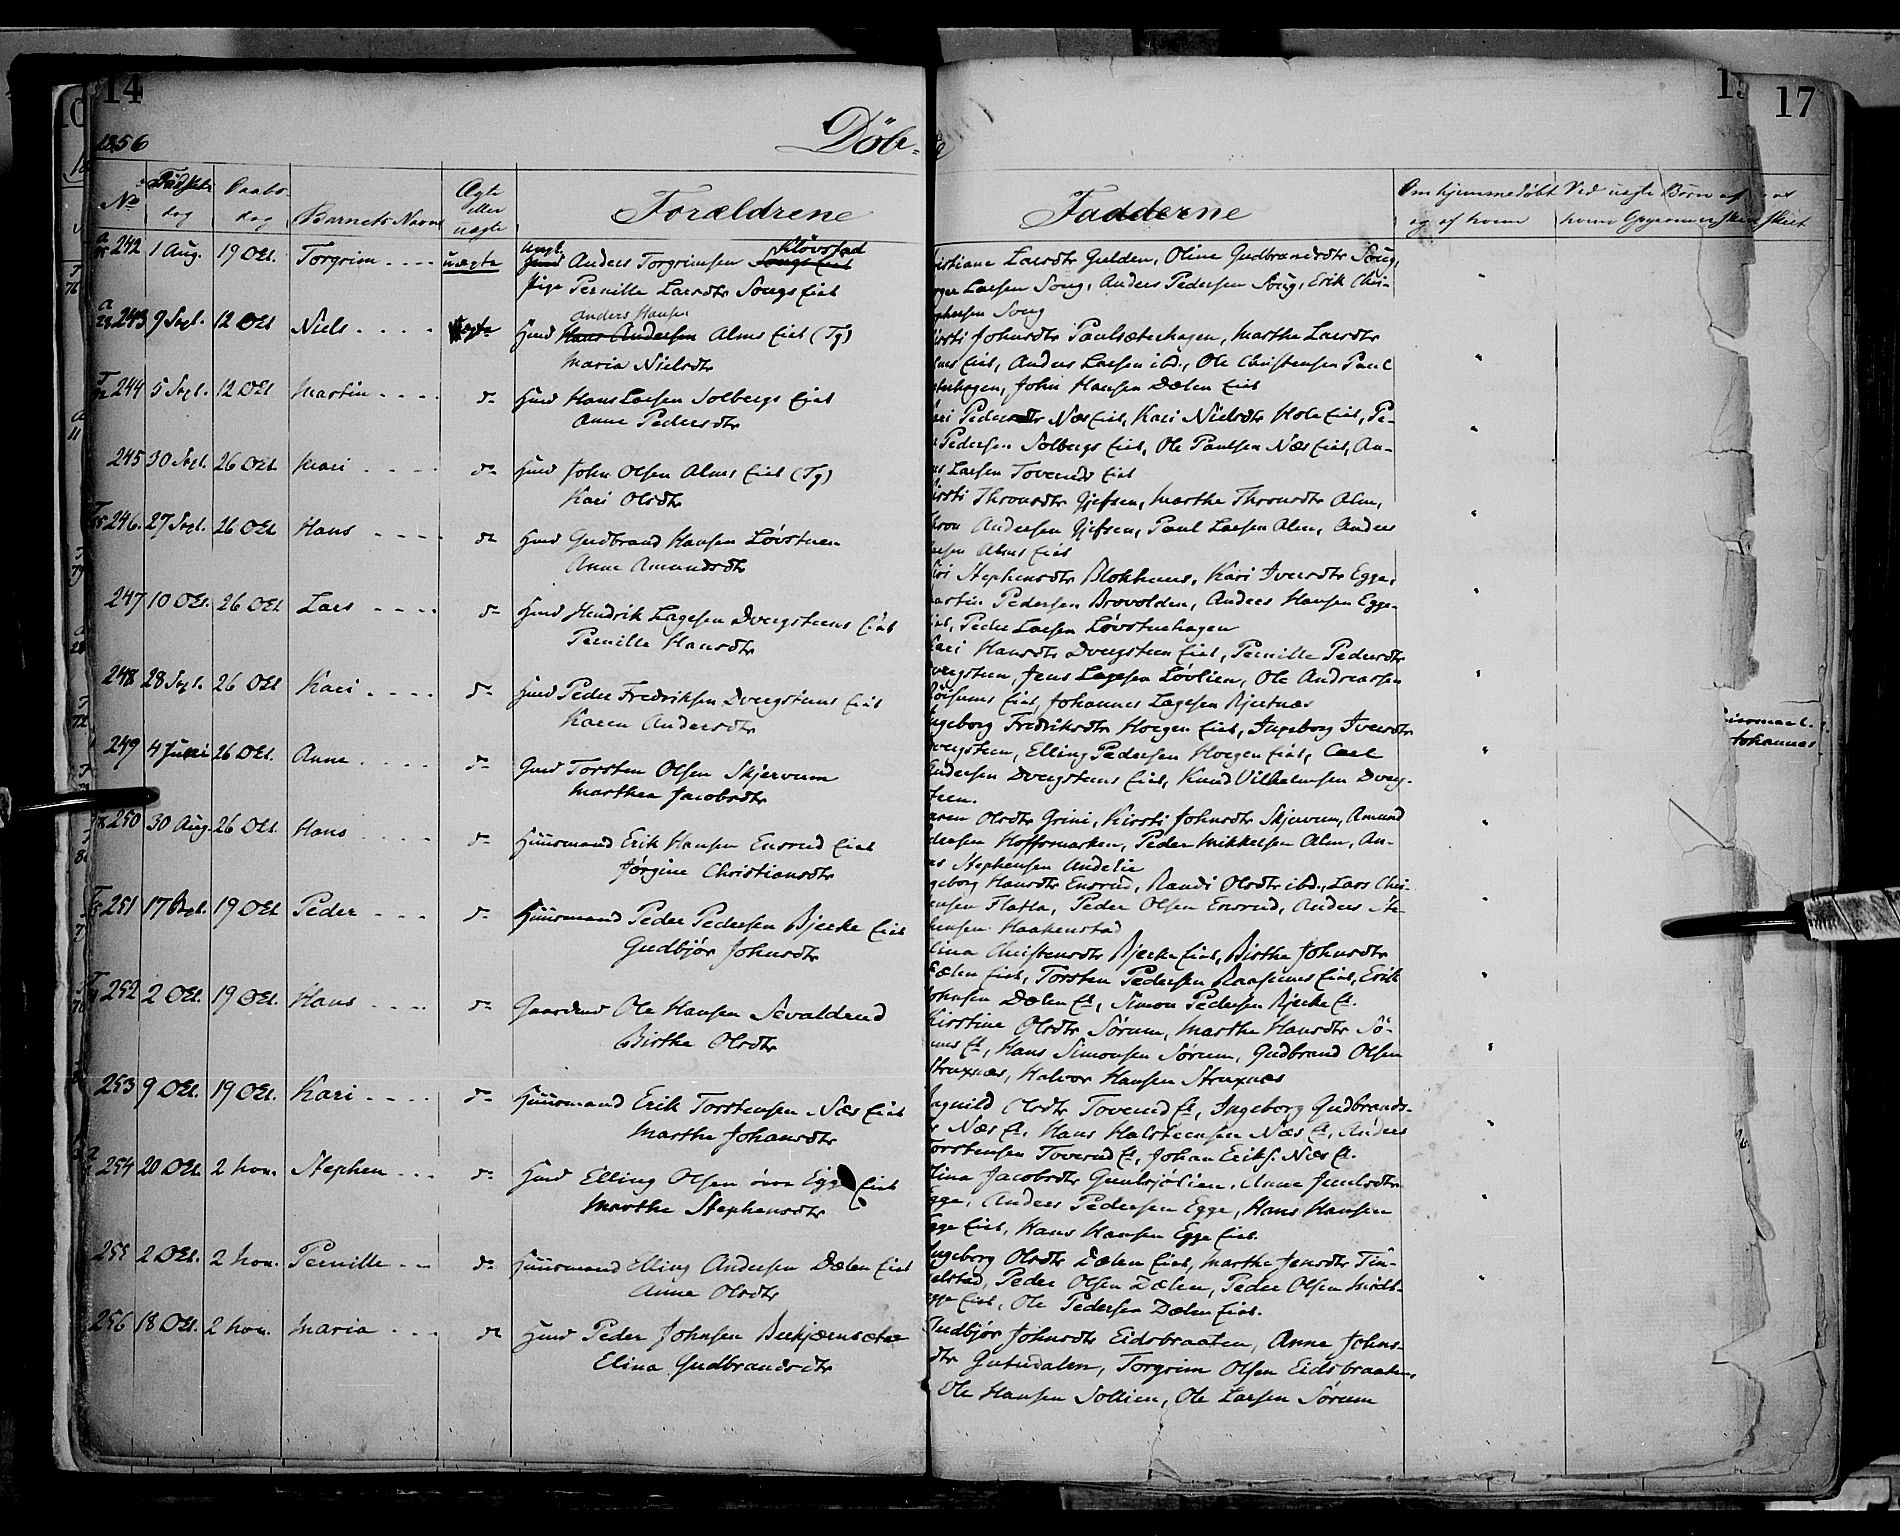 14
17
1856
Döb-
No
Daabs
dag
dag
Barnets Navn
Ægte
eller
uægte
Forældrene
Fadderne
Om hjemmedöbt
og af hvem
Ved uægte Börn af
242 1 Aug. 19 Oct. Torgrim uægte Anders Torgrimsen Klövstad
Pige Pernille Larsdtr Songs Eiet
Larsdtr Gulden, Oline Gudbrandsdtr Song,
Larsen Song, Anders Pedersen Song, Erik Chri-
Song
243 9 Sept. 12 Oct Niels ægte Anders Hansen
Huusd Hans Andersen Alms Eiet (Tg)
Maria Nielsdtr
Johnsdtr Paulsæterhagen, Marthe Larsdtr
Eiet, Anders Larsen ibd., Ole Christensen Paul
John Hansen Dælen Eiet
244 5 Sept. 12 Oct Martin do Huusd Hans Larsen Solbergs Eiet
Anne Pedersdtr
Pedersdtr Næs Eiet, Kari Nielsdtr Hole Eiet, Pe-
Pedersen Solbergs Eiet, Ole Paulsen Næs Eiet, An-
Larsen Toverud Eiet
245 30 Sept. 26 Oct. Mari do Huusd John Olsen Alms Eiet (Tg)
Kari Olsdtr
Thronsdtr Gjefsen, Marthe Thronsdtr Alm,
Andersen Gjefsen, Paul Larsen Alm, Anders
Alms Eiet
246. 27 Sept. 26 Oct Hans do Huusd Gudbrand Hansen Løvstuen
Anne Amundsdtr
Stephensdtr Blokhuus, Kari Iversdtr Egge,
Pedersen Brovolden, Anders Hansen Egge-
Peder Larsen Løvstuehagen
247 10 Oct. 26 Oct Lars do Huusd Hendrik Lagesen Dvergsteens Eiet
Pernille Hansdtr
Hansdtr Dvergsteen Eiet, Pernille Pedersdtr
Jens Lagesen Løvlien, Ole Andreassen
Eiet, Johannes Lagesen Bjertnæs
248 28 Sept. 26 Oct Kari do Huusd Peder Fredriksen Dvergsteens Eiet
Karen Andersdtr
Ingeborg Fredriksdtr Hvegen Eiet, Ingeborg Iversdtr
Elling Pedersen Hvegen Eiet, Carl
Andersen Dvergsteens Eiet, Knud Vilhelmsen Dverg-
steen.
249 4 Juni 26 Oct. Anne do Gmd Torsten Olsen Skjervum
Marthea Jacobsdtr
Olsdtr Grini, Kirsti Johnsdtr Skjervum, Amund
Hoffsmarken, Peder Mikkelsen Alm, An-
Stephensen Andelie
250 30 Aug. 26 Oct. Hans do Huusmand Erik Hansen Ensrud Eiet
Jørgine Christiansdtr
Hansdtr Ensrud, Randi Olsdtr ibd., Lars Chri-
Flatla, Peder Olsen Ensrud, Anders Ste-
Haakenstad
251 17 Sept. 19 Oct Peder do Huusmand Peder Pedersen Bjerke Eiet
Gudbjør Johnsdtr
Christensdtr Bjerke Eiet, Birthe Johnsdtr
Dælen Eiet, Torsten Pedersen Raasums Eiet, Erik
Johnsen Dælen Et, Simon Pedersen Bjerke Et.
252 2 Oct. 19 Oct. Hans do Gaardmd Ole Hansen Sevaldrud
Birthe Olsdtr
Kirstine Olsdtr Sørum, Marthe Hansdtr Sö-
Hans Simonsen Sørum, Gudbrand Olsen
Struxnæs, Halvor Hansen Struxnæs
253 9 Oct. 19 Oct. Kari do Huusmand Erik Torstensen Næs Eiet
Marthe Johansdtr
Olsdtr Toverud Et, Ingeborg Gudbrands-
Næs Et, Hans Halsteensen Næs Et, Anders
Torstensen Toverud Et, Johan Eriks. Næs Et.
254 20 Oct. 2 Nov. Stephen do Huusd Elling Olsen øvre Egge Eiet
Marthe Stephensdtr
Jacobsdtr Anne Juulsdtr
Egge, Anders Pedersen Egge, Hans Hansen
Egge Eiet, Hans Hansen Egge Eiet.
255 2 Oct. 2 Nov. Pernille do Huusmand Elling Andersen Dælen Eiet
Anne Olsdtr
Ingeborg Olsdtr Dælen Eiet, Marthe Jensdtr Tin-
gelstad, Peder Olsen Dælen, Peder Olsen Midt-
Eiet, Ole Pedersen Dælen Eiet.
256 18 Oct. 2 Nov. Maria do Huusd Peder Johnsen Beekjernsæter
Elina Gudbrandsdtr
Gudbjør Johnsdtr Eidsbraaten, Anne Johns-
dtr Gutudalen, Torgrim Olsen Eidsbraaten,
Ole Hansen Sollien, Ole Larsen Sørum